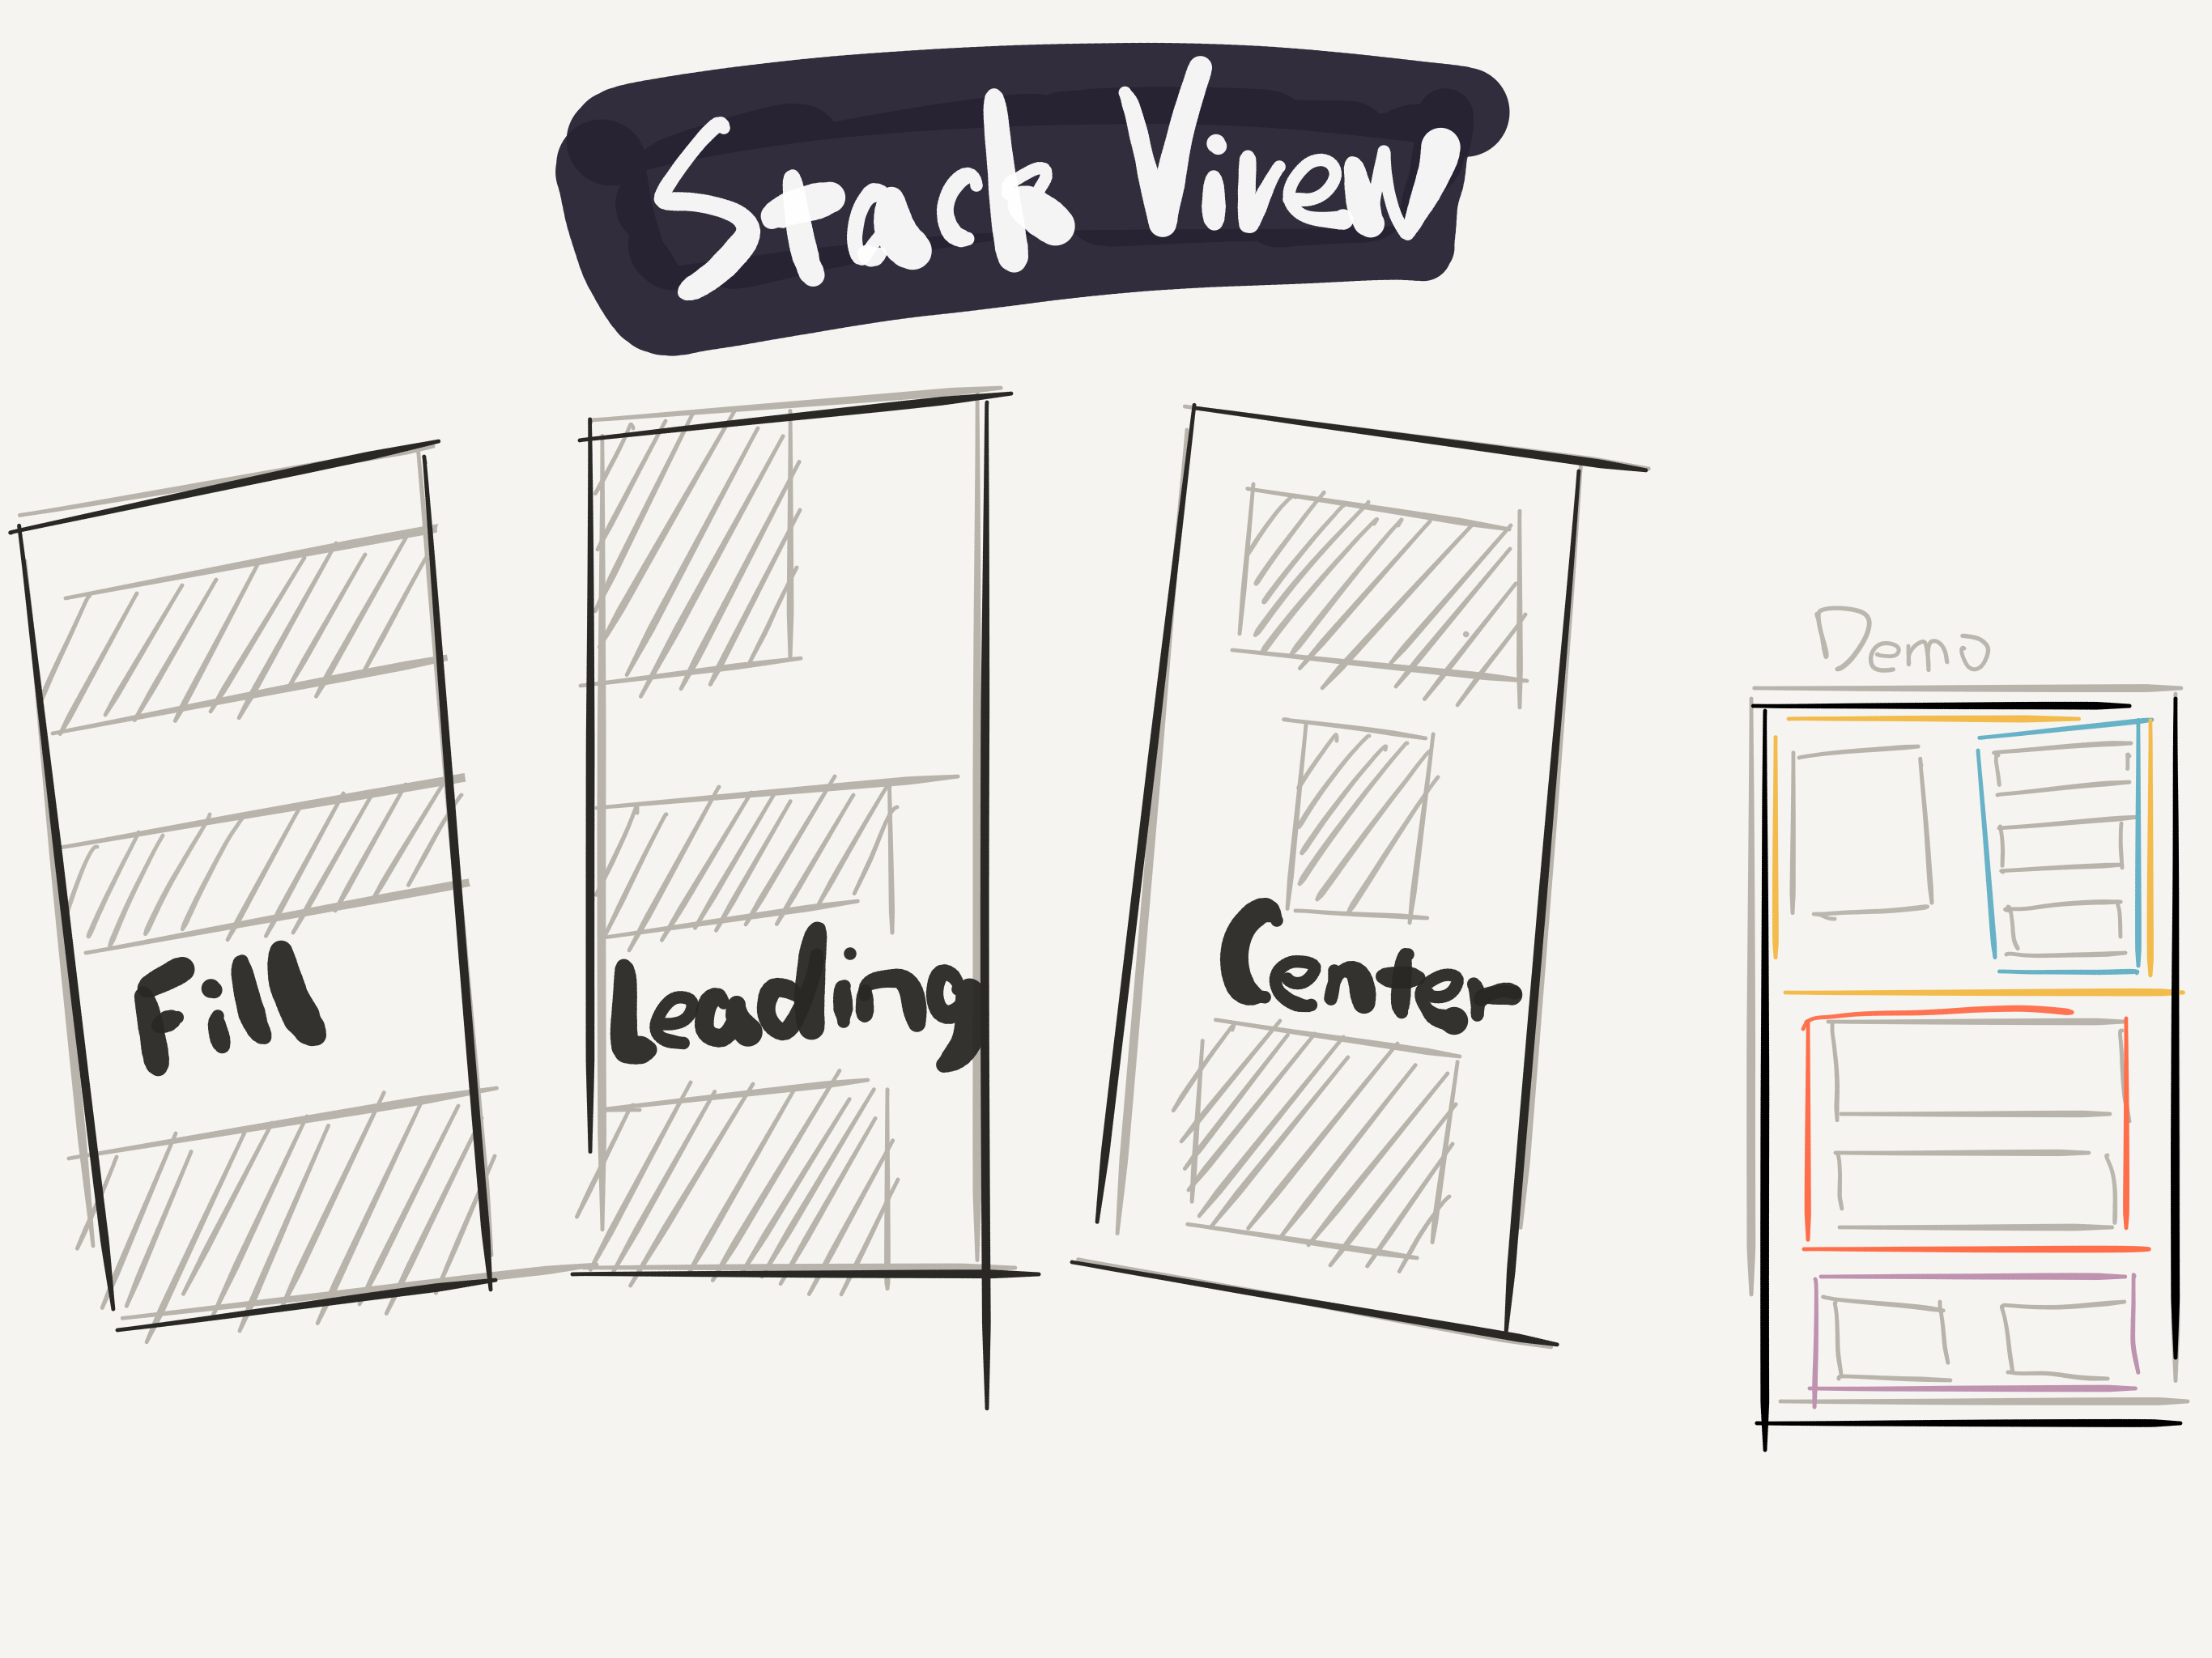 Stack Virew
Fill
Leading
Center
Demo